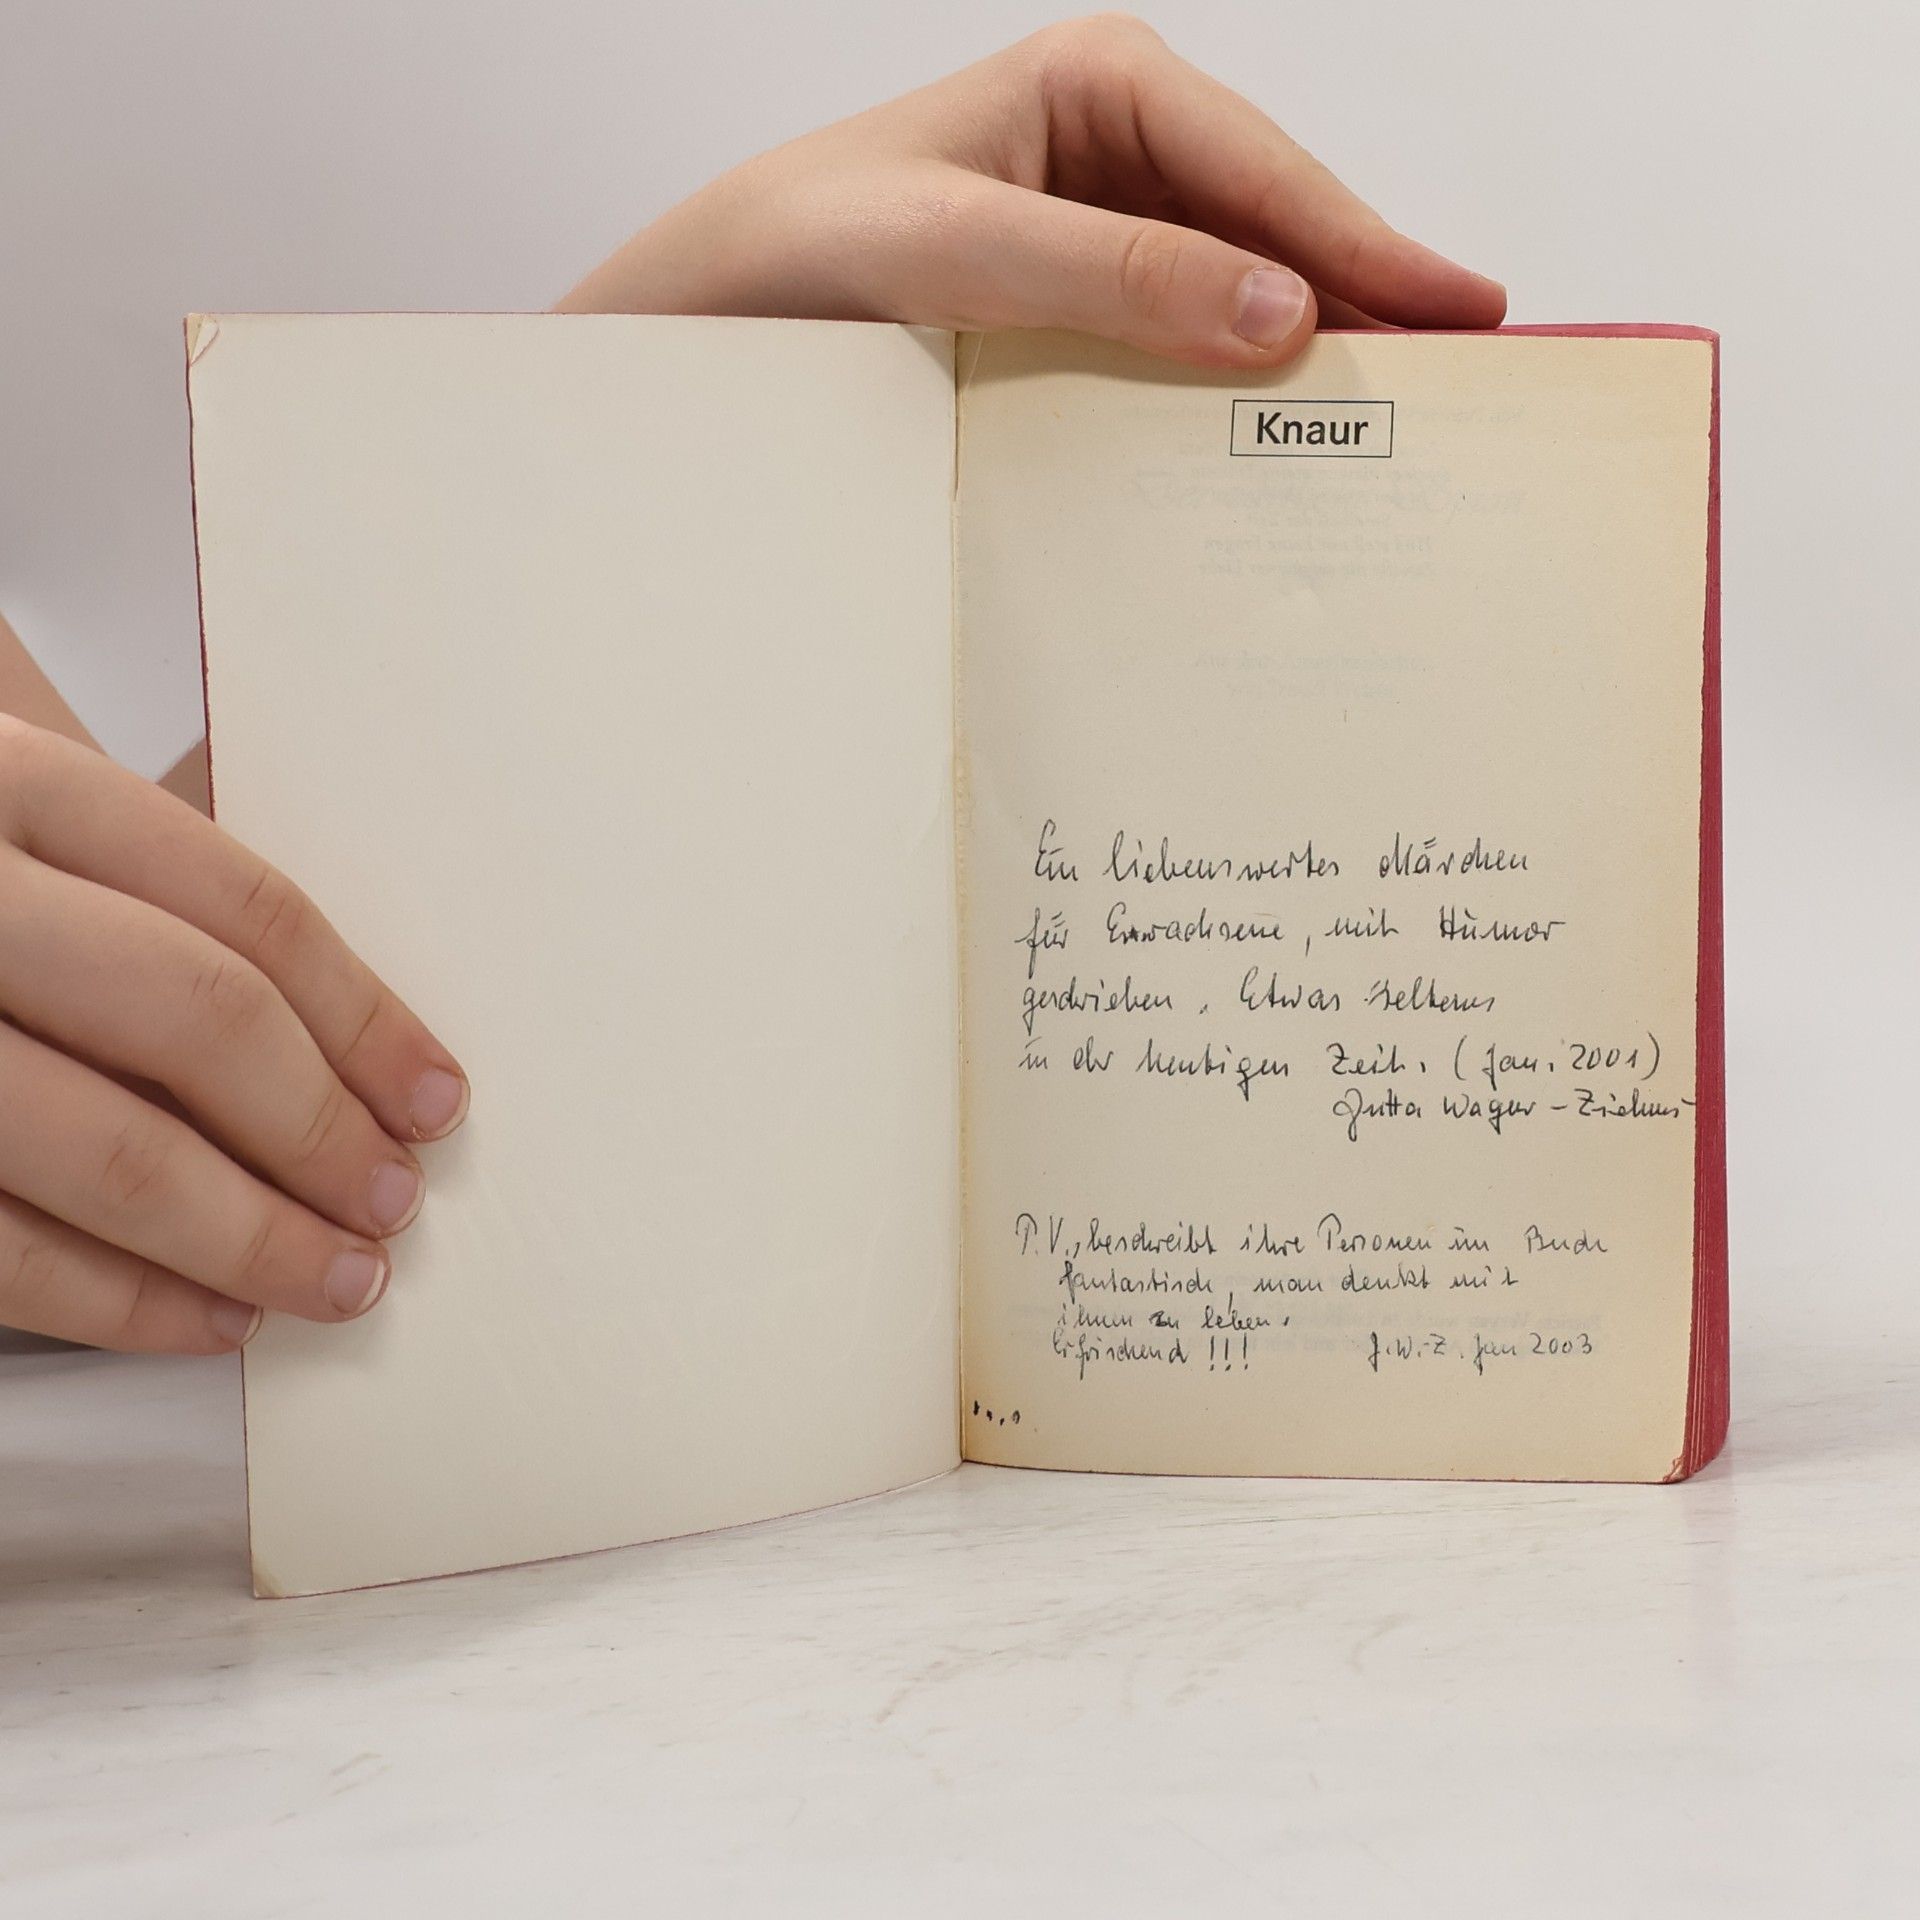 Knaur
Ein liebenswertes Märchen
für Erwachsene, mit Humor
geschrieben. Etwas seltenes
in der heutigen Zeit. (Jan. 2001)
Jutta Wager -
P.V., beschreibt ihre Personen im Buch
fantastisch, man denkt mit
ihnen zu leben.
Erfrischend !!! J.W.-Z. Jan 2003